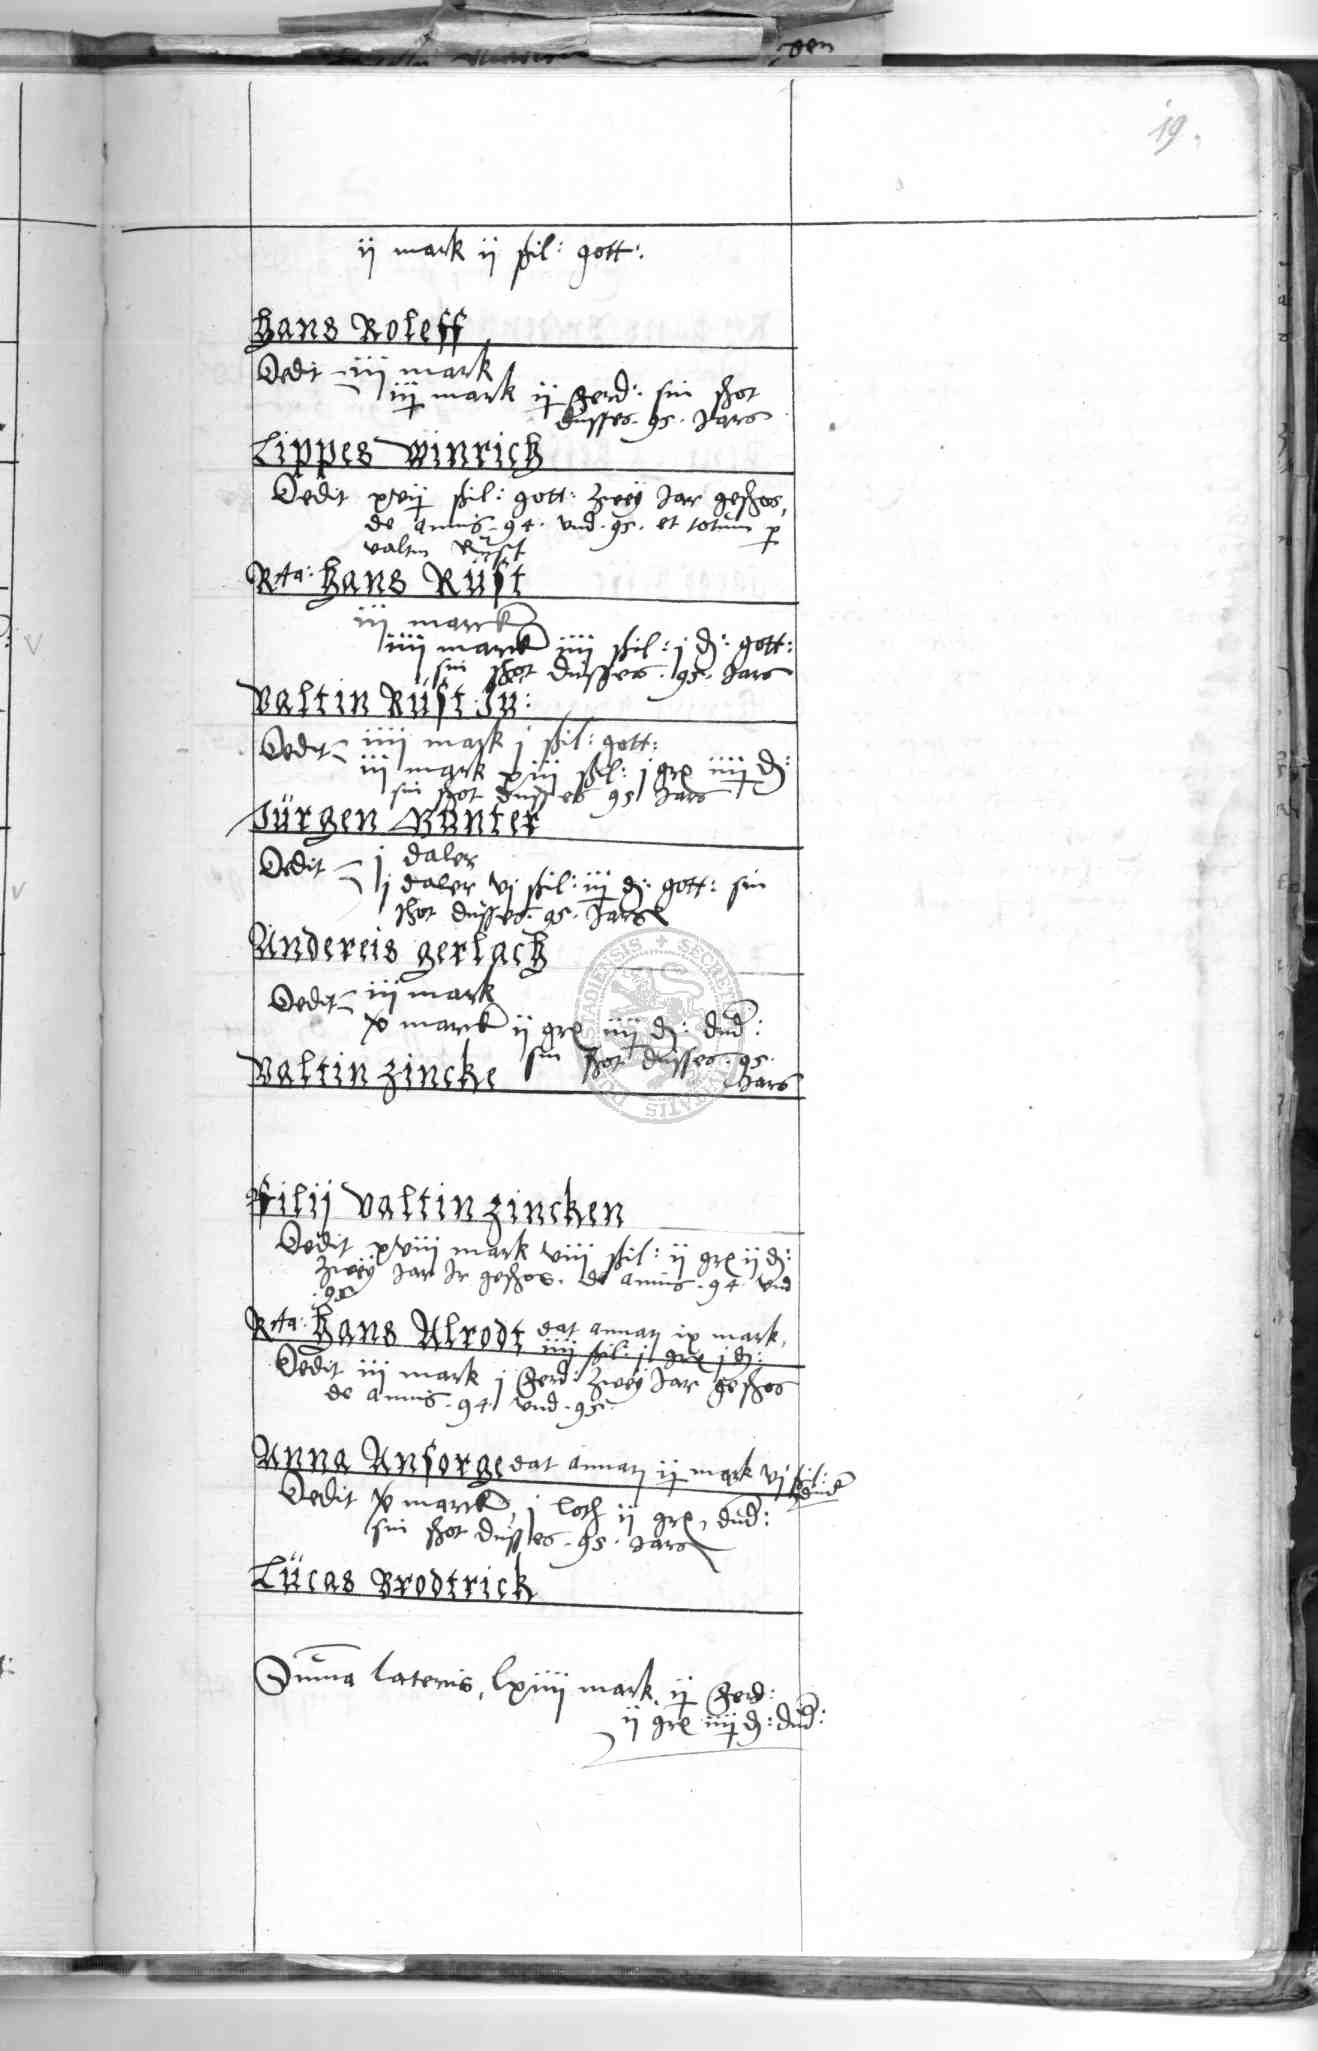 19.
ij mark ij ßil: gott:
Hans Roleff
Dedit iij mark
iij mark ij ferd: sin shot
dusses. 95. Jars
Lippes Winrich
Dedit xvij ßil: gott: zweÿ Jar geschos,
de annis. 94. vnd. 95. et totum p
valtin Rüst
Rta: Hans Rüst
iij marck
iiij marck iiij ßil: j d: gott:
sin shot dusses. 95. Jars
Valtin Rüst Ju:
Dedit iiij mark j ßil: gott:
iij mark xiij ßil: j grx iiij d:
sin shot dusses 95 Jars
Jürgen Bunter
Dedit j daler
j daler vj ßil: iij d: gott: sin
shot dusses. 95. Jars
Andereis Gerlach
Dedit iij mark
x marck ij grx iiij d: dud:
sin shot dusses. 95.
Jars
Valtin Zincke
SECRET
Filij Valtin Zincken
Dedit xviij mark viij ßil: ij grx ij d:
zweÿ Jar Jr geschos. de annis. 94 vnd
.95.
Rta: Hans Alrodt dat annatj ix mark,
iiij ßil: j grx j d:
Dedit iij mark j ferd: zweÿ Jar geschos
de annis. 94 vnd. 95.
Anna Ansorge dat annatj ij mark vj ßil:
dud
Dedit x marck j loth ij grx, dud:
sin shot dusses. 95. Jars
Lücas Brodtrick
Summa lateris, lxiiij mark ij ferd:
ij grx iiij d: dud: